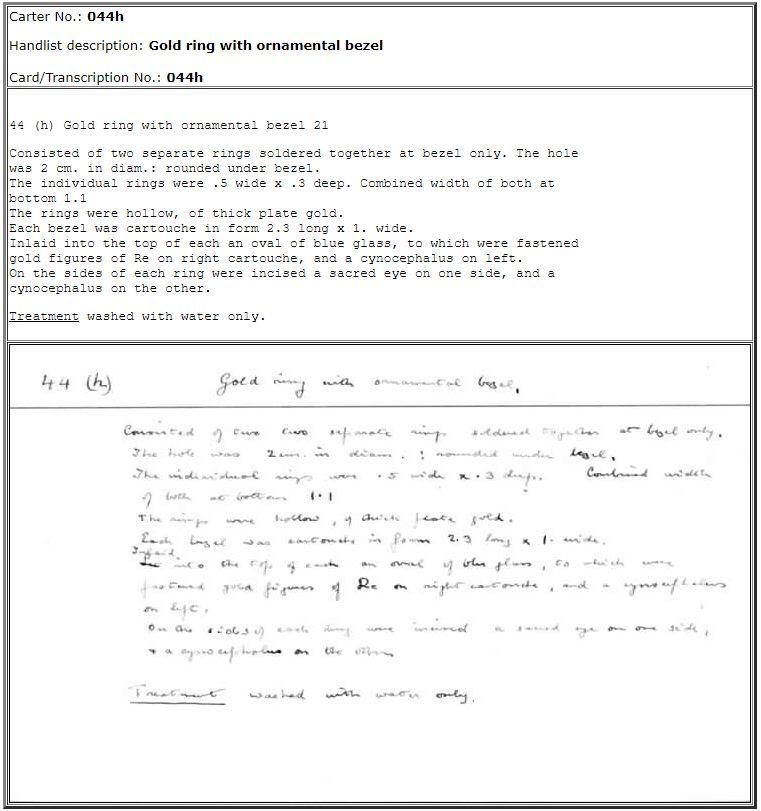 Carter No.: 044h
Handlist description: Gold ring with ornamental bezel
Card/Transcription No.: 044h
44 (h) Gold ring with ornamental bezel 21
Consisted of two separate rings soldered together at bezel only. The hole
was 2 cm. in diam.: rounded under bezel.
The individual rings were .5 wide x .3 deep. Combined width of both at
bottom 1.1
The rings were hollow, of thick plate gold.
Each bezel was cartouche in form 2.3 long x 1. wide.
Inlaid into the top of each an oval of blue glass, to which were fastened
gold figures of Re on right cartouche, and a cynocephalus on left.
On the sides of each ring were incised a sacred eye on one side, and a
cynocephalus on the other.
Treatment washed with water only.
44 (h) Gold ring with ornamental bezel.
Consisted of two two separate rings soldered together at bezel only.
The hole was 2 cm. in diam. : rounded under bezel.
The individual rings were .5 wide x .3 deep. Combined width
of both at bottom 1.1
The rings were hollow, of thick plate gold.
Each bezel was cartouche in form 2.3 long x 1. wide.
Inlaid
into the top of each an oval of blue glass, to which were
fastened gold figures of Re on right cartouche, and a cynocephalus
on left.
On the sides of each ring were incised a sacred eye on one side,
+ a cynocephalus on the other
Treatment washed with water only.